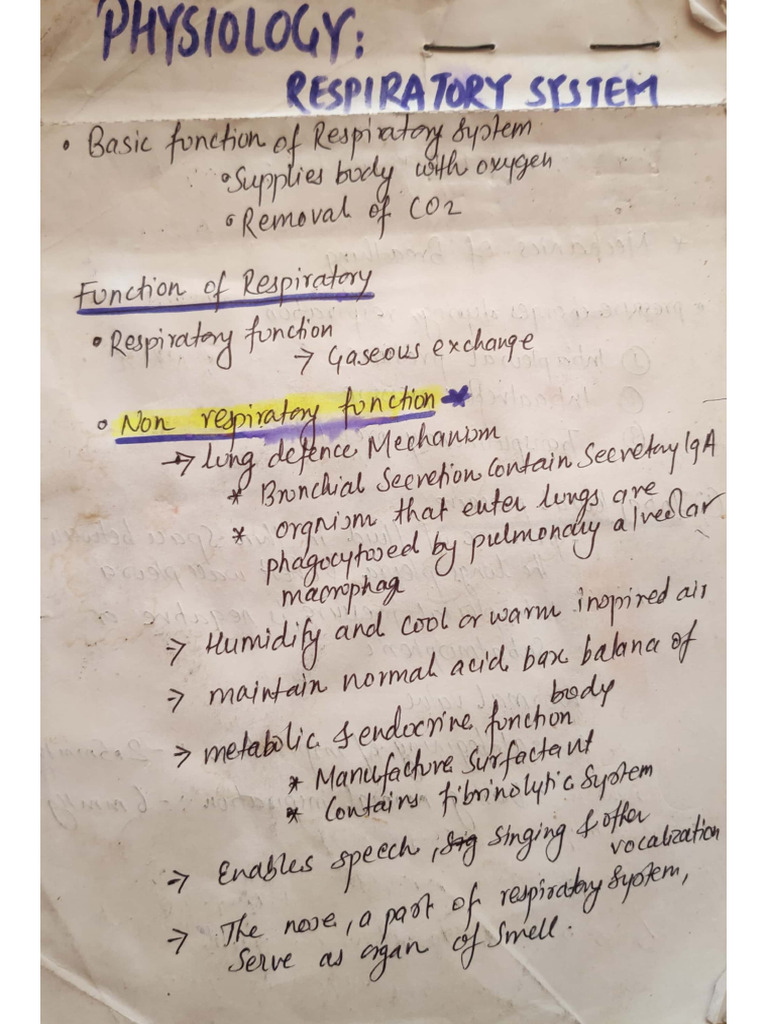 PHYSIOLOGY:
RESPIRATORY SYSTEM
• Basic function of Respiratory System
• Supplies body with oxygen
• Removal of CO2
Function of Respiratory
• Respiratory function
→ Gaseous exchange
• Non respiratory function *
→ lung defence Mechanism
* Bronchial Secretion Contain Secretary IgA
* orgnism that enter lungs are
phagocytosed by pulmonary alveolar
macrophag
→ Humidify and cool or warm inspired air
→ maintain normal acid base balance of
body
→ metabolic & endocrine function
* Manufacture Surfactant
* Contains fibrinolytic System
→ Enables speech, singing & other
vocalization
→ The nose, a part of respiratory System,
Serve as organ of Smell.